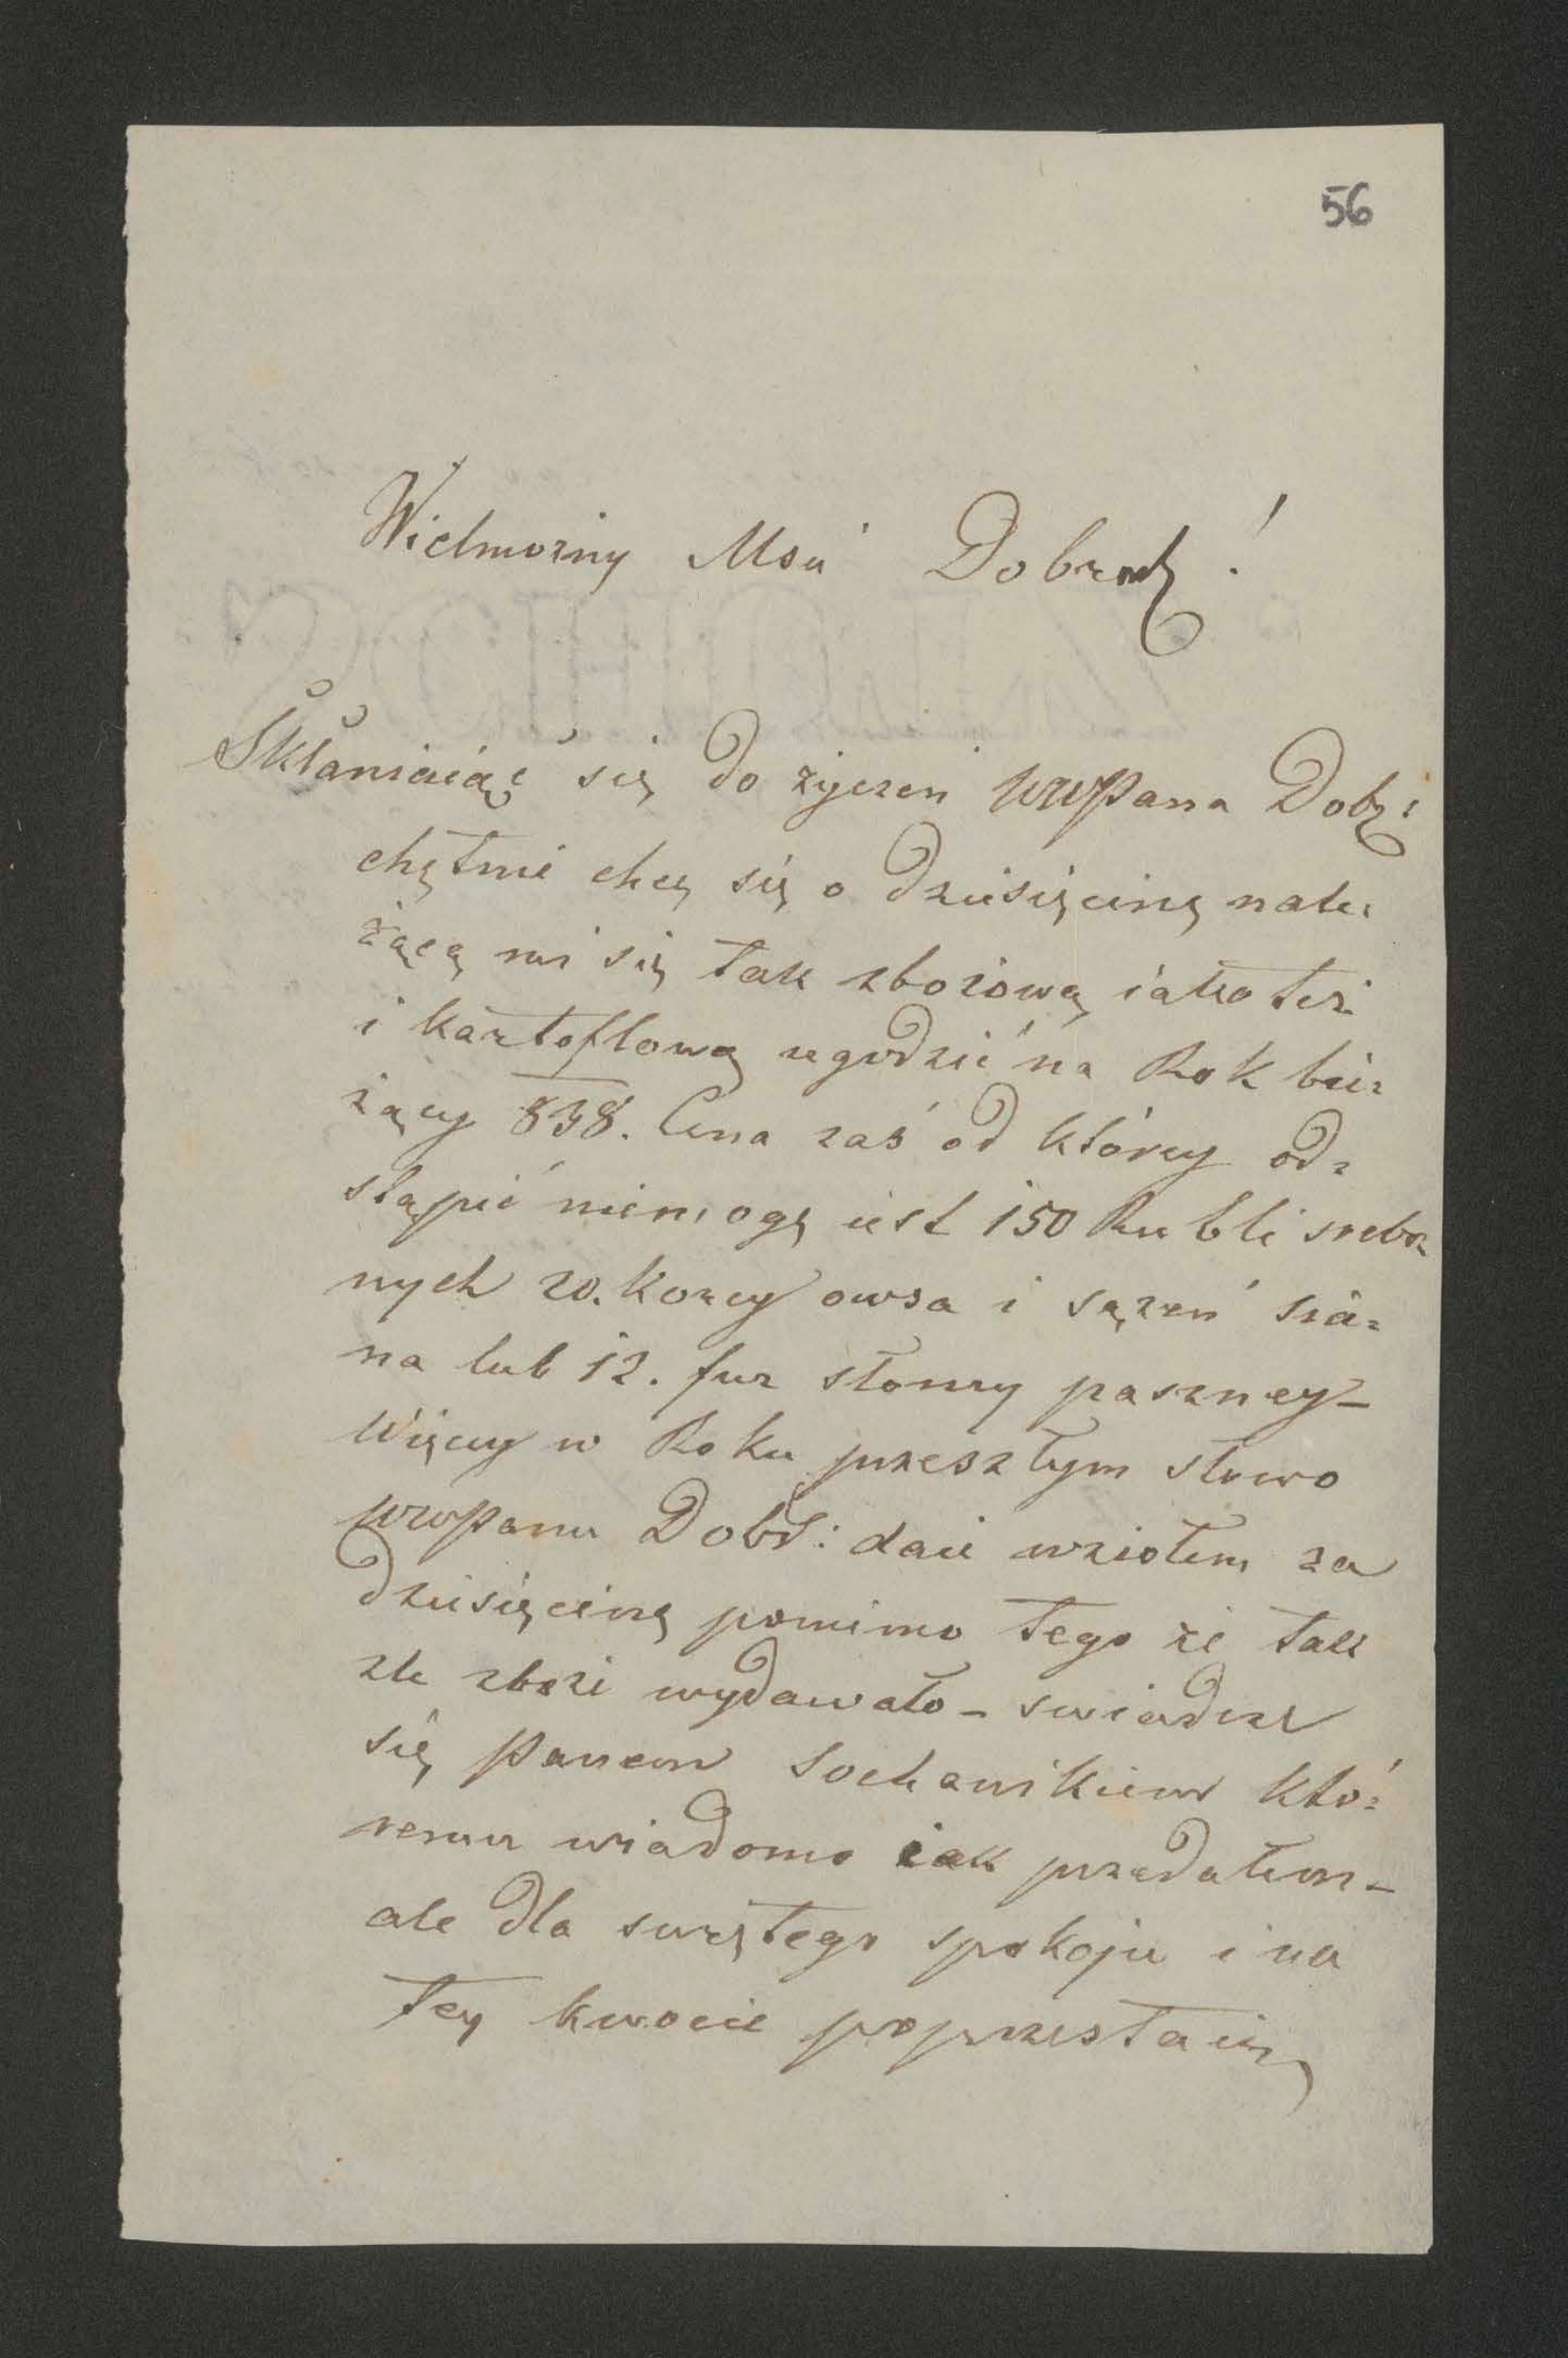 56
Wielmożny Msći Dobrodz!
Skłaniaiąc się do życzeń WWPana Dobr:
chętnie chcę się o Dziesięcinę nale:
żącą mi się tak zbożową iako też
i kartoflową ugodzić na Rok bie:
żący 838. Cena zaś od którey od:
stąpić niemogę iest 150 Rubli srebr:
nych 20. korcy owsa i sążeń sia:
na lub 12. fur słomy paszney –
Więcey w Roku przeszłym słowo
WWPanu Dobr: daię wziołem za
Dziesięcinę pomimo tego że tak
źle zboże wydawało – swiadczę
się Panem Sochanikiem któ:
remu wiadomo iak przedałem –
ale dla swiętego spokoju i na
tey kwocie poprzestaię